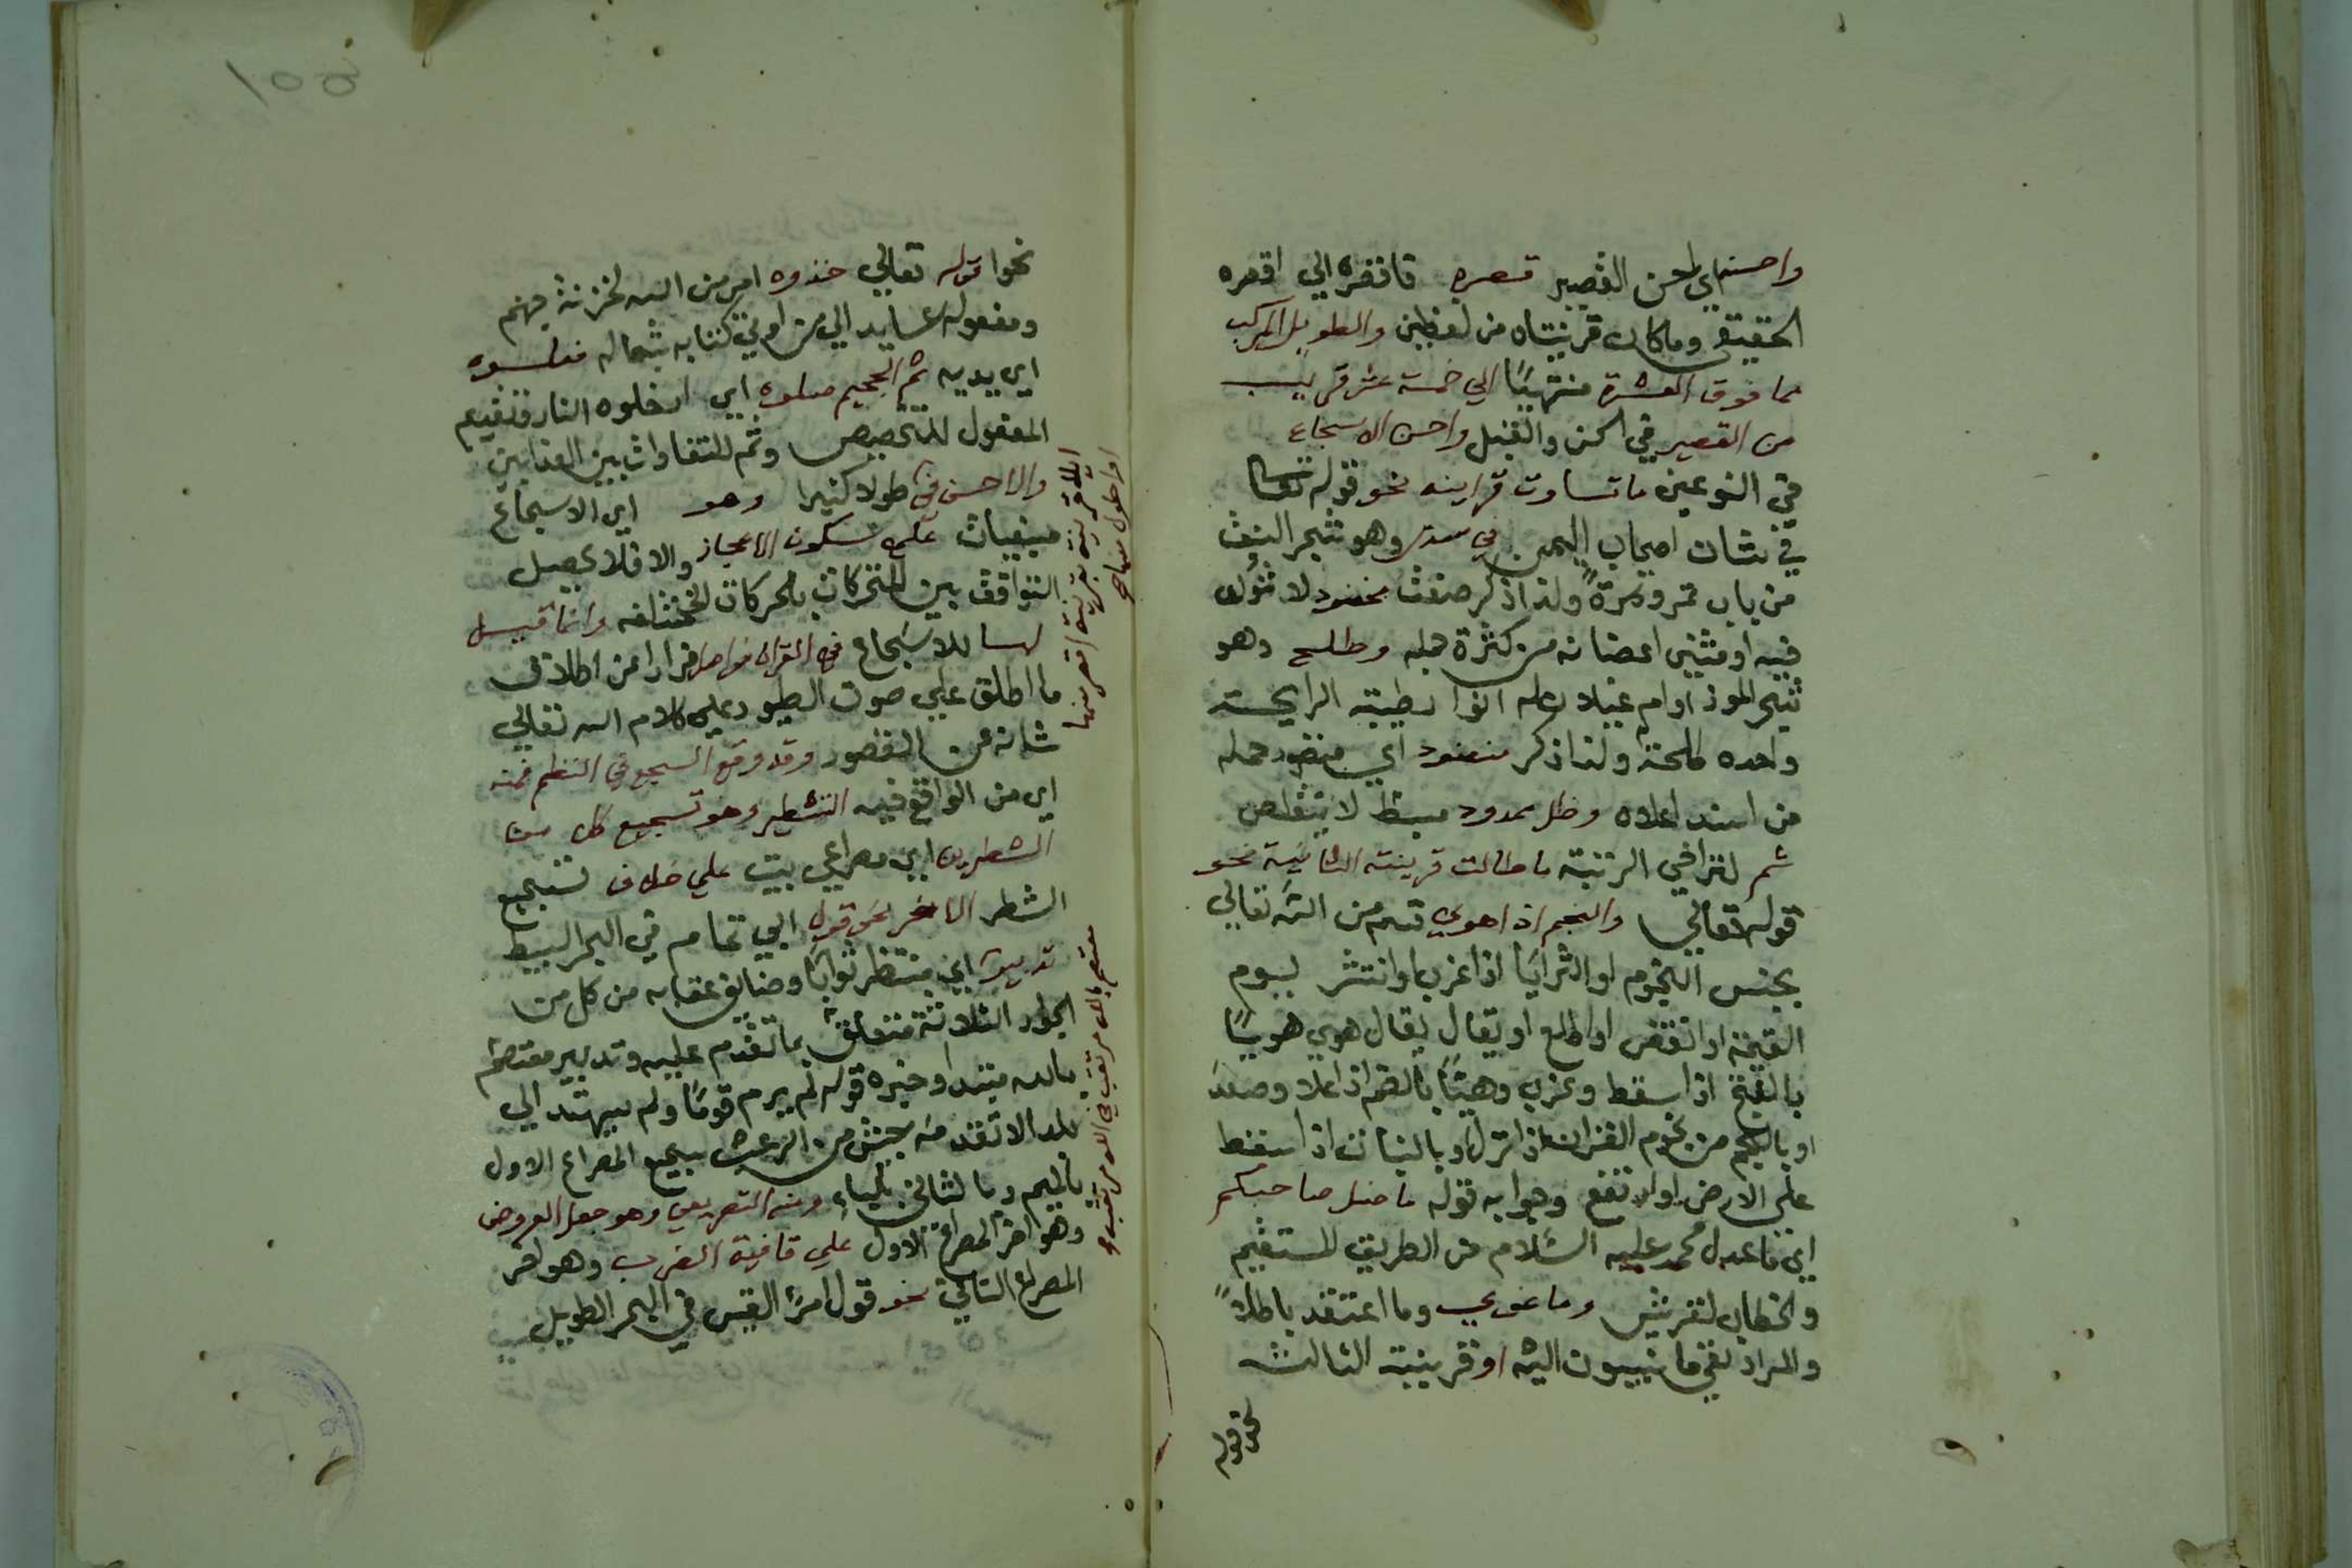 واحسنه اي احسن القصير قصره فاقفره الي اقصره
الحقيقي وما كان قرينتاه من لفظين والطويل المركب
مما فوق العشرة منتهيًا الي خمسة عشر قريب
من القصير في الحسن والقبل واحسن الاسجاع
في النوعين ما تساوت قراينه نحو قوله تعالى
في شان اصحاب اليمين في سدر وهو شجر النبق
من باب تمر وتمرة ولذا ذكر صفة مخضود لا شوك
فيه او مثني اعضانه من كثرة حمله وطلح وهو
شجر الموز او ام غيلان وله انوار طيبة الرايحة
واحده طلحة ولذا ذكر منضود اي منضود حمله
من اسفله اعلاه وظل ممدود مبسط لا يتقلص
ثم لتراخي الرتبة ما طالت قرينته الثانية نحو
قوله تعالي والنجم اذا هوي قسم من الله تعالي
بجنس النجوم او الثريا اذا غرب او انتثر يوم
القيمة او انقض او اطلع او يقال يقال هوي هويًا
بالفتح اذا سقط وغرب وهيًا بالضم اذا علا وصعد
او بالنجم من نجوم القران اذا نزل او بالنبات اذا سقط
علي الارض او ارتفع وجوابه قوله ما ضل صاحبكم
اي ما عدل محمد عليه السلام عن الطريق المستقيم
والخطاب لقريش وما غوي وما اعتقد باطلاً
والمراد نفي ما ينسبون اليه او قرينته الثالثة
نحو قوله
نحوا قوله تعالي خذوه امر من الله لخزنة جهنم
ومفعوله عايد الي من اوتي كتابه بشماله فغلوه
اي يديه ثم الجحيم صلوه اي ادخلوه النار وتقديم
المفعول للتخصيص وثم للتفاوت بين العذابين
والاحسن في طولا كثيرا وهو اي الاسجاع
مبنيات علي سكون الاعجاز والا فلا يحصل
التوافق بين المتحركات بالحركات المختلفة وانما قيل
لها للاسجاع في القران فواصل فرارا من اطلاق
ما اطلق علي صوت الطيور علي كلام الله تعالي
شانه عن القصور وقد وقع السجع في النظم فمنه
اي من الواقع فيه التشطير وهو تسجيع كل من
الشطرين اي مصراعي بيت علي خلاف تسجيع
الشطر الاخر نحو قول ابي تمام في البحر البسيط
تدبير اي منتظر ثوابًا وخايف عقابه من كل من
الجار الثلاثة متعلق بما تقدم عليه وتدبير معتصم
بالله مبتدا وخبره قوله لم يرم قومًا ولم ينهد الي
بلد الا تقدمه جيش من الرعب سجع المصراع الاول
بالميم وبالثاني بالباء ومنه التصريع وهو جعل العروض
وهو اخر المصراع الاول علي قافية الضرب وهو اخر
المصراع الثاني نحو قول امرئ القيس في البحر الطويل
معتصم بالله مرتقب في الله مرتغب
١٥٥